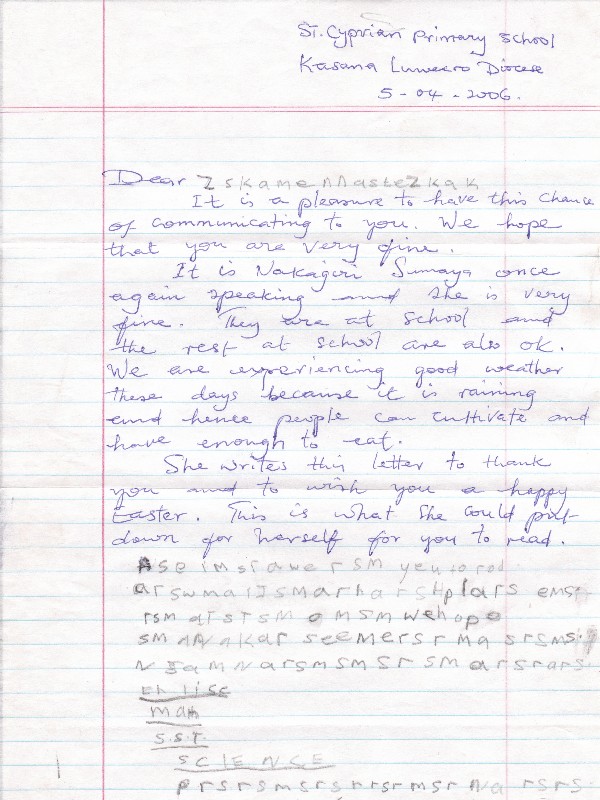 St. Cyprian Primary School
Kasana Luweero Diocese
5-04-2006.
Dear
It is a pleasure to have this chance
of communicating to you. We hope
that you are very fine.
It is Nakagiri Sumaya once
again speaking and she is very
fine. They are at school and
the rest at school are also ok.
We are experiencing good weather
these days because it is raining
and hence people can cultivate and
have enough to eat.
She writes this letter to thank
you and to wish you a happy
Easter. This is what she could put
down for herself for you to read.
wehope
math
S.S.T.
SCIENCE